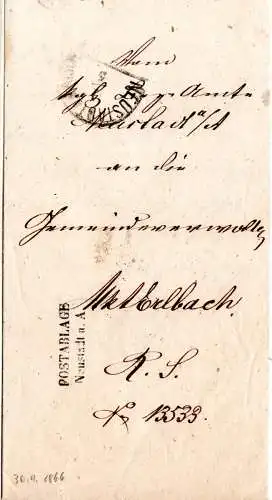 Vom
kgl. Bez. Amte
Neustadt a/A
an die
Gemeindeverwaltung
Mkt Erlbach.
R. S.
No 13533
NEUSTADT
POSTABLAGE
Neustadt a. A.
30.9.1866